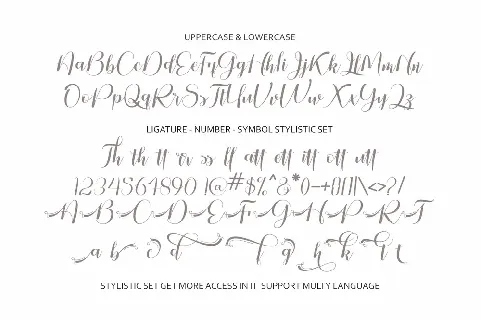 UPPERCASE & LOWERCASE
AaBbCcDdEeFfGgHhIiJjKkLlMmNn
OoPpQqRrSsTtUuVvWwXxYyZz
LIGATURE - NUMBER - SYMBOL STYLISTIC SET
Th th tt or ss ff att ett itt ott utt
1234564890 !@#$%^&*()-+{}[]\<>?/
A B C D E F G H P R T
a b d f g h k l t
STYLISTIC SET GET MORE ACCESS IN IT SUPPORT MULTY LANGUAGE